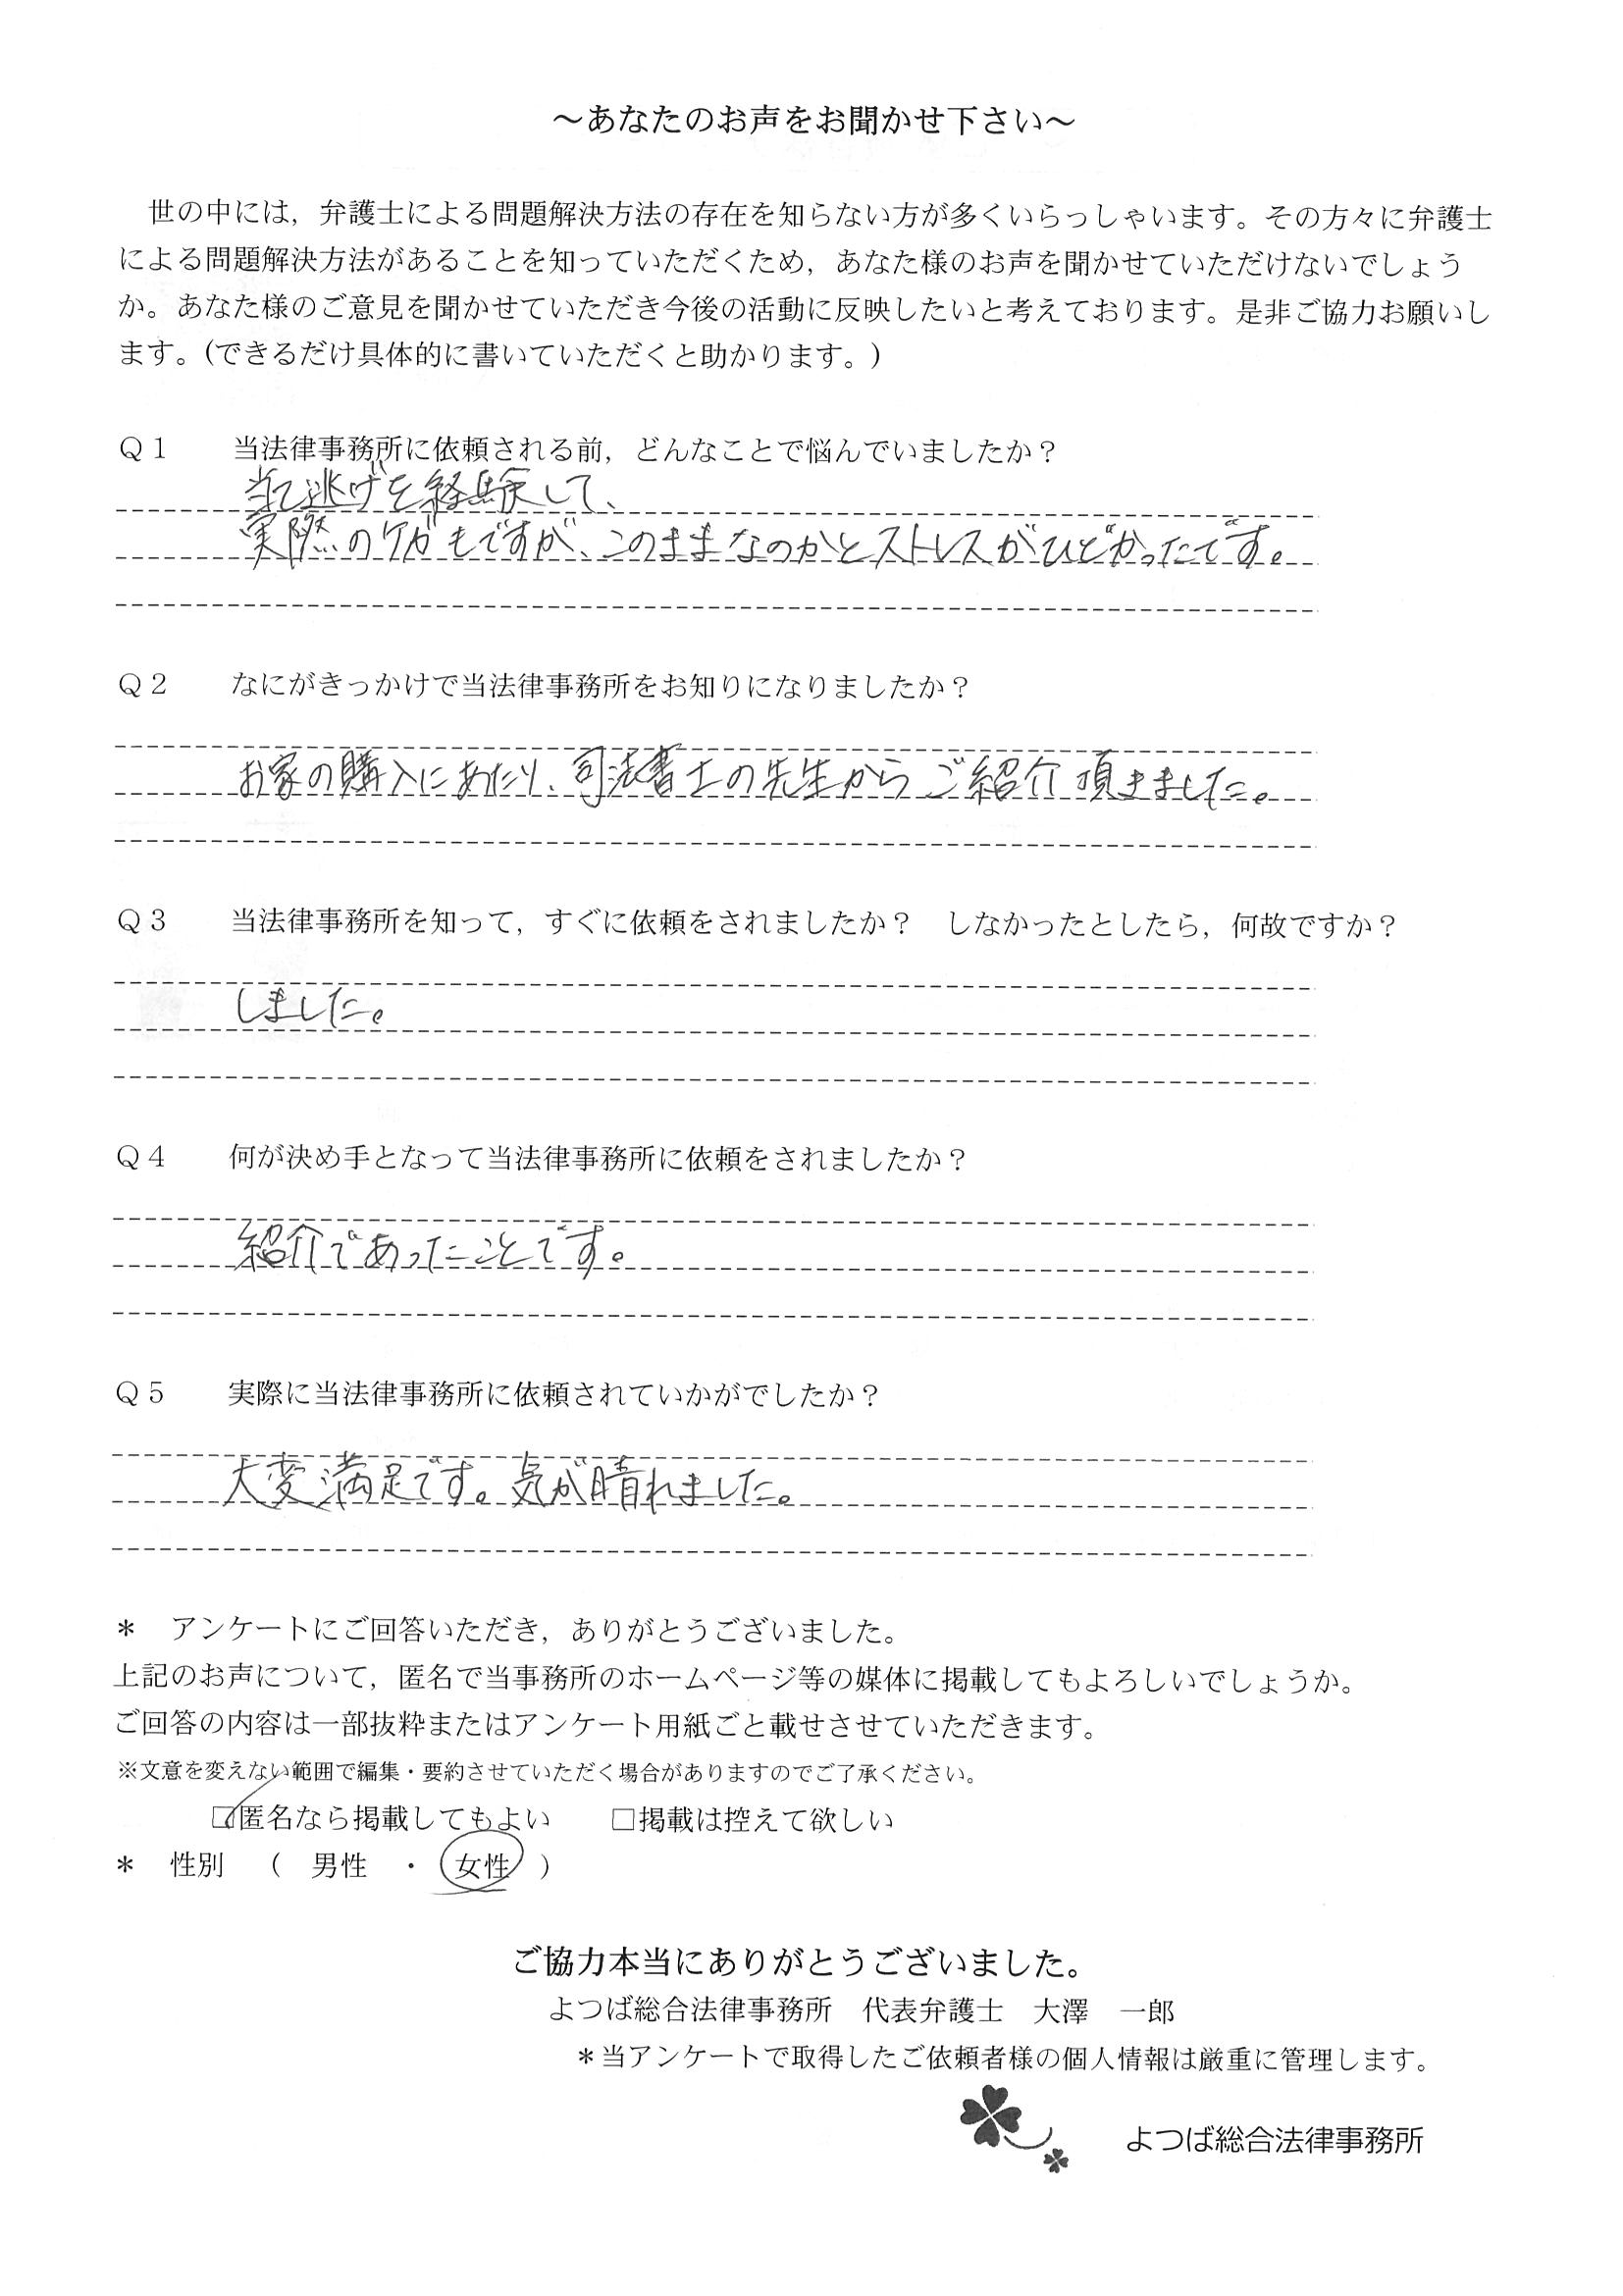 ～あなたのお声をお聞かせ下さい～
世の中には，弁護士による問題解決方法の存在を知らない方が多くいらっしゃいます。その方々に弁護士
による問題解決方法があることを知っていただくため，あなた様のお声を聞かせていただけないでしょう
か。あなた様のご意見を聞かせていただき今後の活動に反映したいと考えております。是非ご協力お願いし
ます。（できるだけ具体的に書いていただくと助かります。）
Ｑ１　当法律事務所に依頼される前，どんなことで悩んでいましたか？
当て逃げを経験して、
実際のケガもですが、このままなのかとストレスがひどかったです。
Ｑ２　なにがきっかけで当法律事務所をお知りになりましたか？
お家の購入にあたり、司法書士の先生からご紹介頂きました。
Ｑ３　当法律事務所を知って，すぐに依頼をされましたか？　しなかったとしたら，何故ですか？
しました。
Ｑ４　何が決め手となって当法律事務所に依頼をされましたか？
紹介であったことです。
Ｑ５　実際に当法律事務所に依頼されていかがでしたか？
大変満足です。気が晴れました。
＊　アンケートにご回答いただき，ありがとうございました。
上記のお声について，匿名で当事務所のホームページ等の媒体に掲載してもよろしいでしょうか。
ご回答の内容は一部抜粋またはアンケート用紙ごと載せさせていただきます。
※文意を変えない範囲で編集・要約させていただく場合がありますのでご了承ください。
☑匿名なら掲載してもよい　□掲載は控えて欲しい
＊　性別　（　男性　・　女性　）
ご協力本当にありがとうございました。
よつば総合法律事務所　代表弁護士　大澤　一郎
＊当アンケートで取得したご依頼者様の個人情報は厳重に管理します。
よつば総合法律事務所